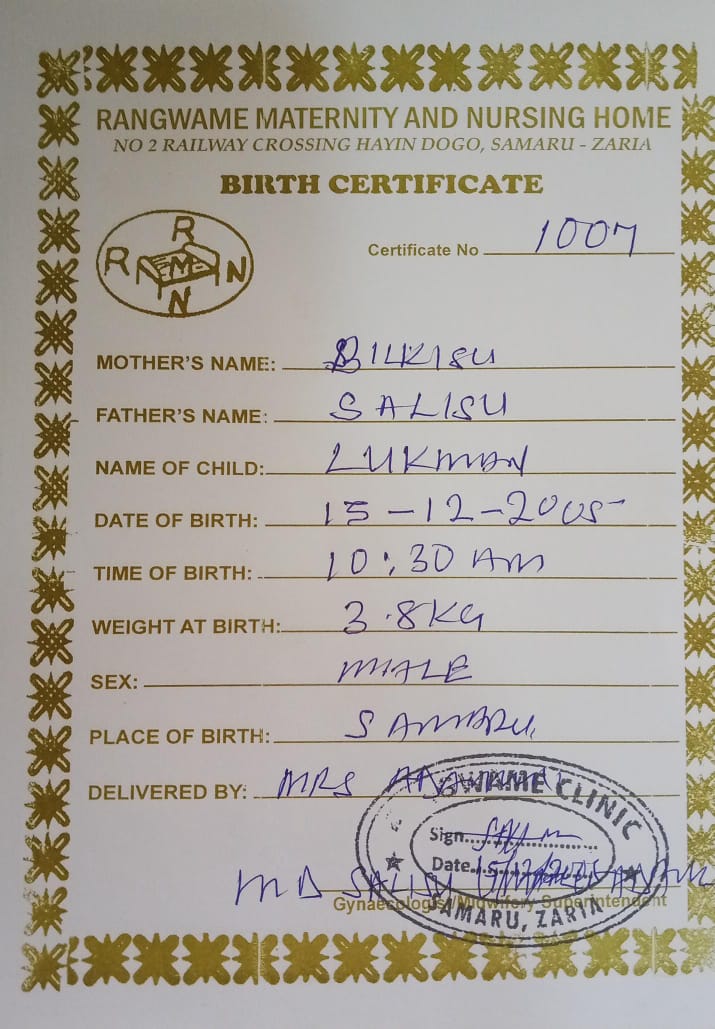 RANGWAME MATERNITY AND NURSING HOME
NO 2 RAILWAY CROSSING HAYIN DOGO, SAMARU - ZARIA
BIRTH CERTIFICATE
R R M N N
Certificate No 1007
MOTHER'S NAME: BILKISU
FATHER'S NAME: SALISU
NAME OF CHILD: LUKMAN
DATE OF BIRTH: 15-12-2005
TIME OF BIRTH: 10:30 AM
WEIGHT AT BIRTH: 3.8KG
SEX: MALE
PLACE OF BIRTH: SAMARU
DELIVERED BY: MRS
WAME CLINIC
Sign
Date 15/12/2005
MD SALISU
Gynaecologist/Midwifery Superintendent
SAMARU, ZARIA